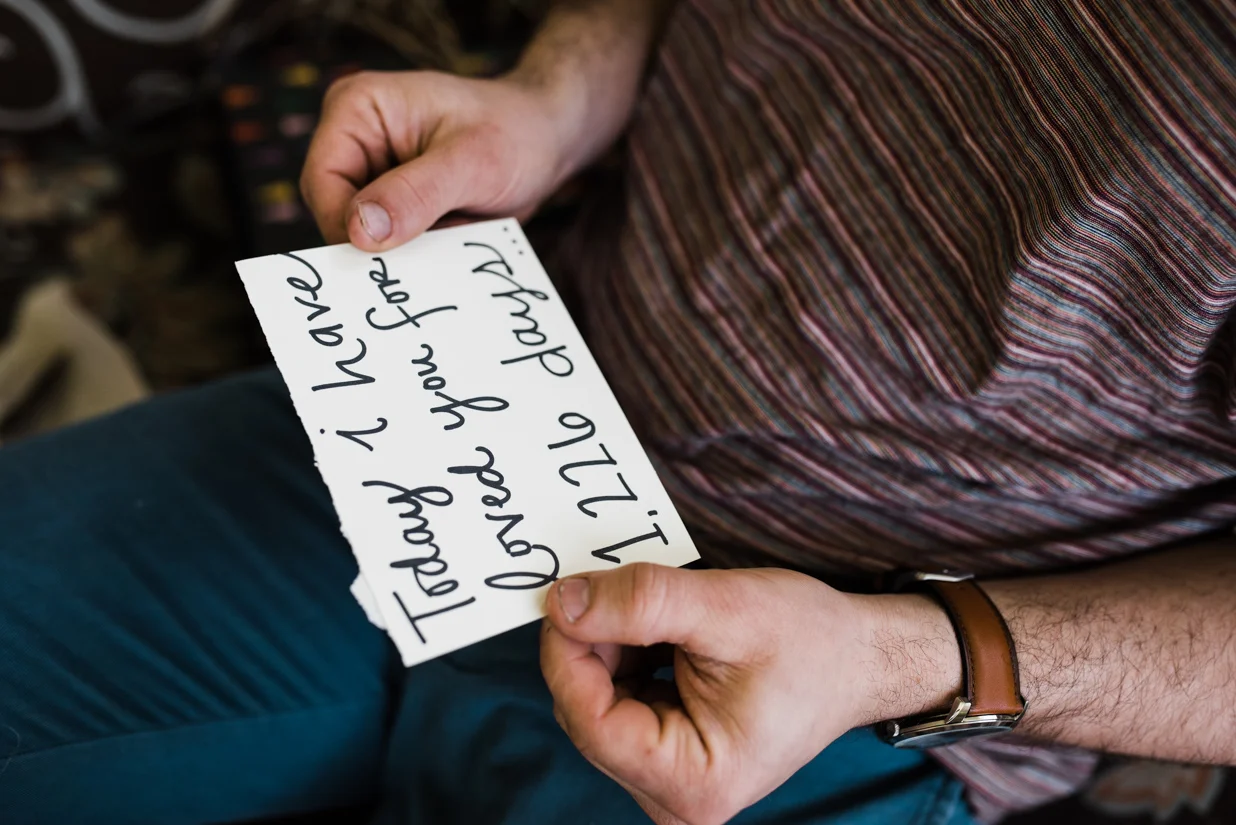 Today i have
loved you for
1.226 days...